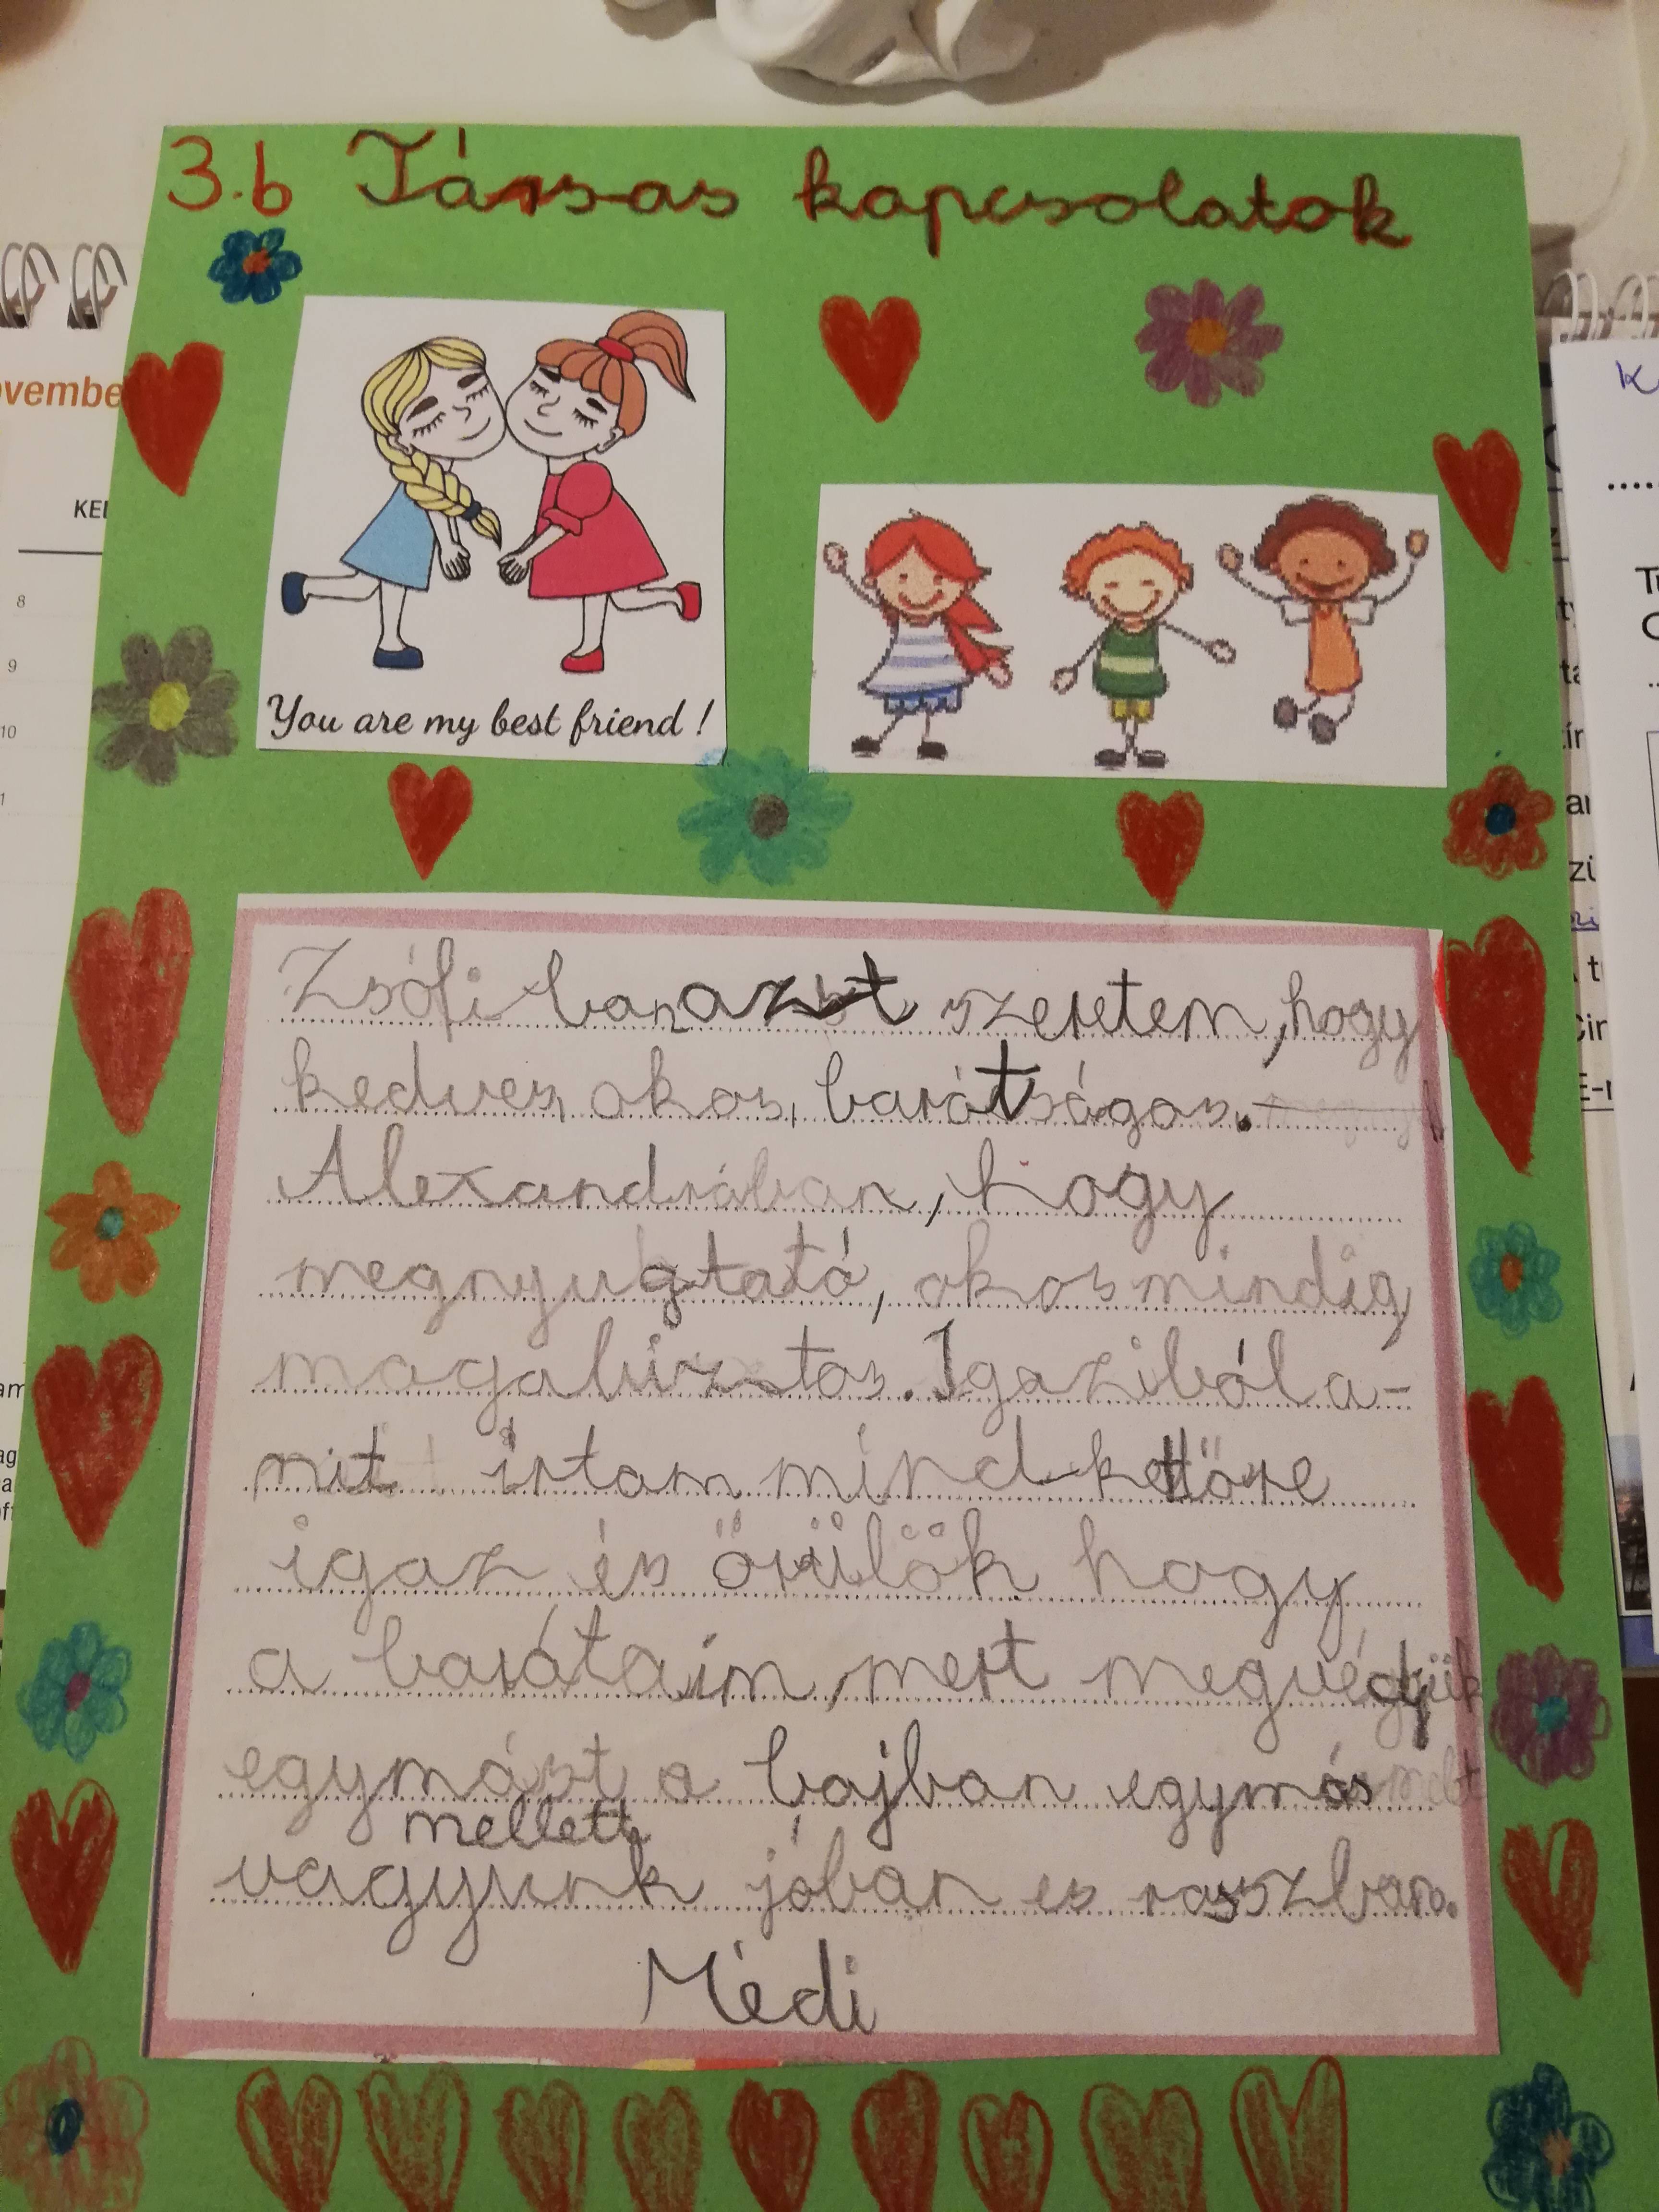 3.b Társas kapcsolatok
ovembe
KE
8
9
10
You are my best friend!
Zsófi ban azt szeretem, hogy
kedves, okos, barátságos.
Alexandrában, hogy
megnyugtató, okos mindig
magabiztos. Igaziból a-
mit írtam mind kettőre
igaz és örülök hogy
a barátaim, mert megvédjük
egymást a bajban egymás
mellett
vagyunk jóban es rosszban.
Médi